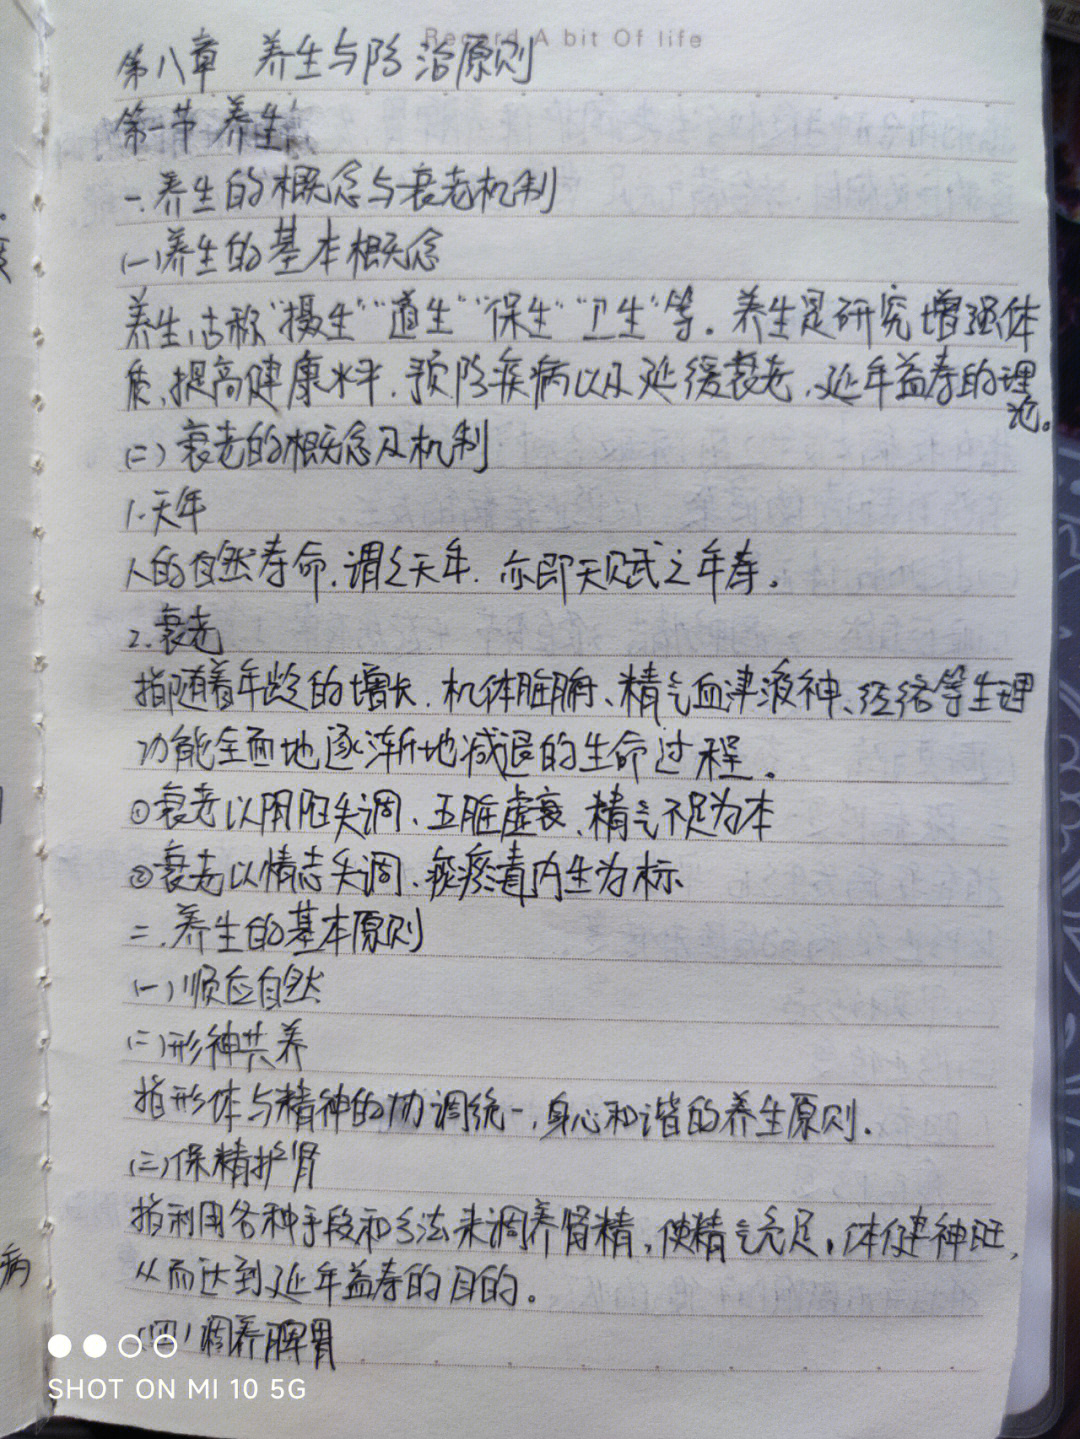 Record A bit Of life
第八章 养生与防治原则
第一节 养生
一.养生的概念与衰老机制
(一)养生的基本概念
养生,古称"摄生""道生""保生""卫生"等.养生是研究增强体
质,提高健康水平.预防疾病以及延缓衰老.延年益寿的理
论。
(二)衰老的概念及机制
1.天年
人的自然寿命.谓之天年.亦即天赋之年寿。
2.衰老
指随着年龄的增长.机体脏腑、精气血津液神、经络等生理
功能全面地逐渐地减退的生命过程。
①衰老以阴阳失调、五脏虚衰、精气不足为本
②衰老以情志失调、痰瘀毒内生为标
二.养生的基本原则
(一)顺应自然
(二)形神共养
指形体与精神的协调统一,身心和谐的养生原则.
(三)保精护肾
指利用各种手段和方法来调养肾精,使精气充足,体健神旺,
从而达到延年益寿的目的。
(四)调养脾胃
病
SHOT ON MI 10 5G